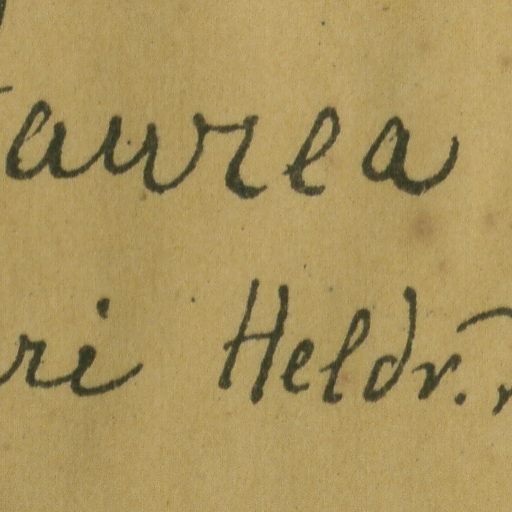 aurea
ri Heldr.